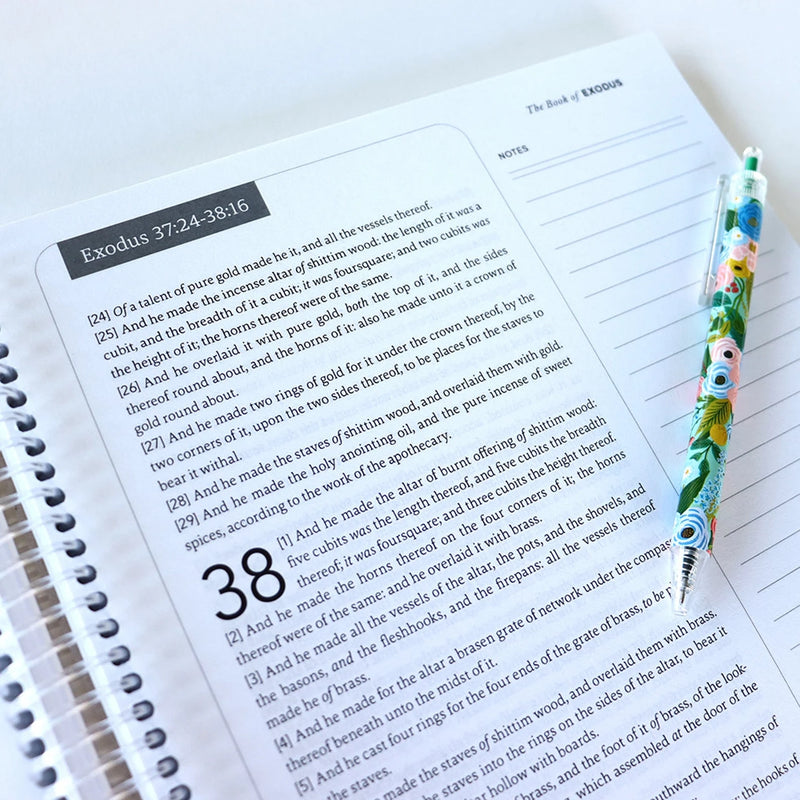 The Book of EXODUS
NOTES
Exodus 37:24-38:16
[24] Of a talent of pure gold made he it, and all the vessels thereof.
[25] And he made the incense altar of shittim wood: the length of it was a
cubit, and the breadth of it a cubit; it was foursquare; and two cubits was
the height of it; the horns thereof were of the same.
[26] And he overlaid it with pure gold, both the top of it, and the sides
thereof round about, and the horns of it: also he made unto it a crown of
gold round about.
[27] And he made two rings of gold for it under the crown thereof, by the
two corners of it, upon the two sides thereof, to be places for the staves to
bear it withal.
[28] And he made the staves of shittim wood, and overlaid them with gold.
[29] And he made the holy anointing oil, and the pure incense of sweet
spices, according to the work of the apothecary.
38
[1] And he made the altar of burnt offering of shittim wood:
five cubits was the length thereof, and five cubits the breadth
thereof; it was foursquare; and three cubits the height thereof.
[2] And he made the horns thereof on the four corners of it; the horns
thereof were of the same: and he overlaid it with brass.
[3] And he made all the vessels of the altar, the pots, and the shovels, and
the basons, and the fleshhooks, and the firepans: all the vessels thereof
made he of brass.
[4] And he made for the altar a brasen grate of network under the compass
thereof beneath unto the midst of it.
[5] And he cast four rings for the four ends of the grate of brass, to be
the staves.
made the staves of shittim wood, and overlaid them with brass.
the staves into the rings on the sides of the altar, to bear it
hollow with boards.
of brass, and the foot of it of brass, of the look-
which assembled at the door of the
southward the hangings of
the hooks of